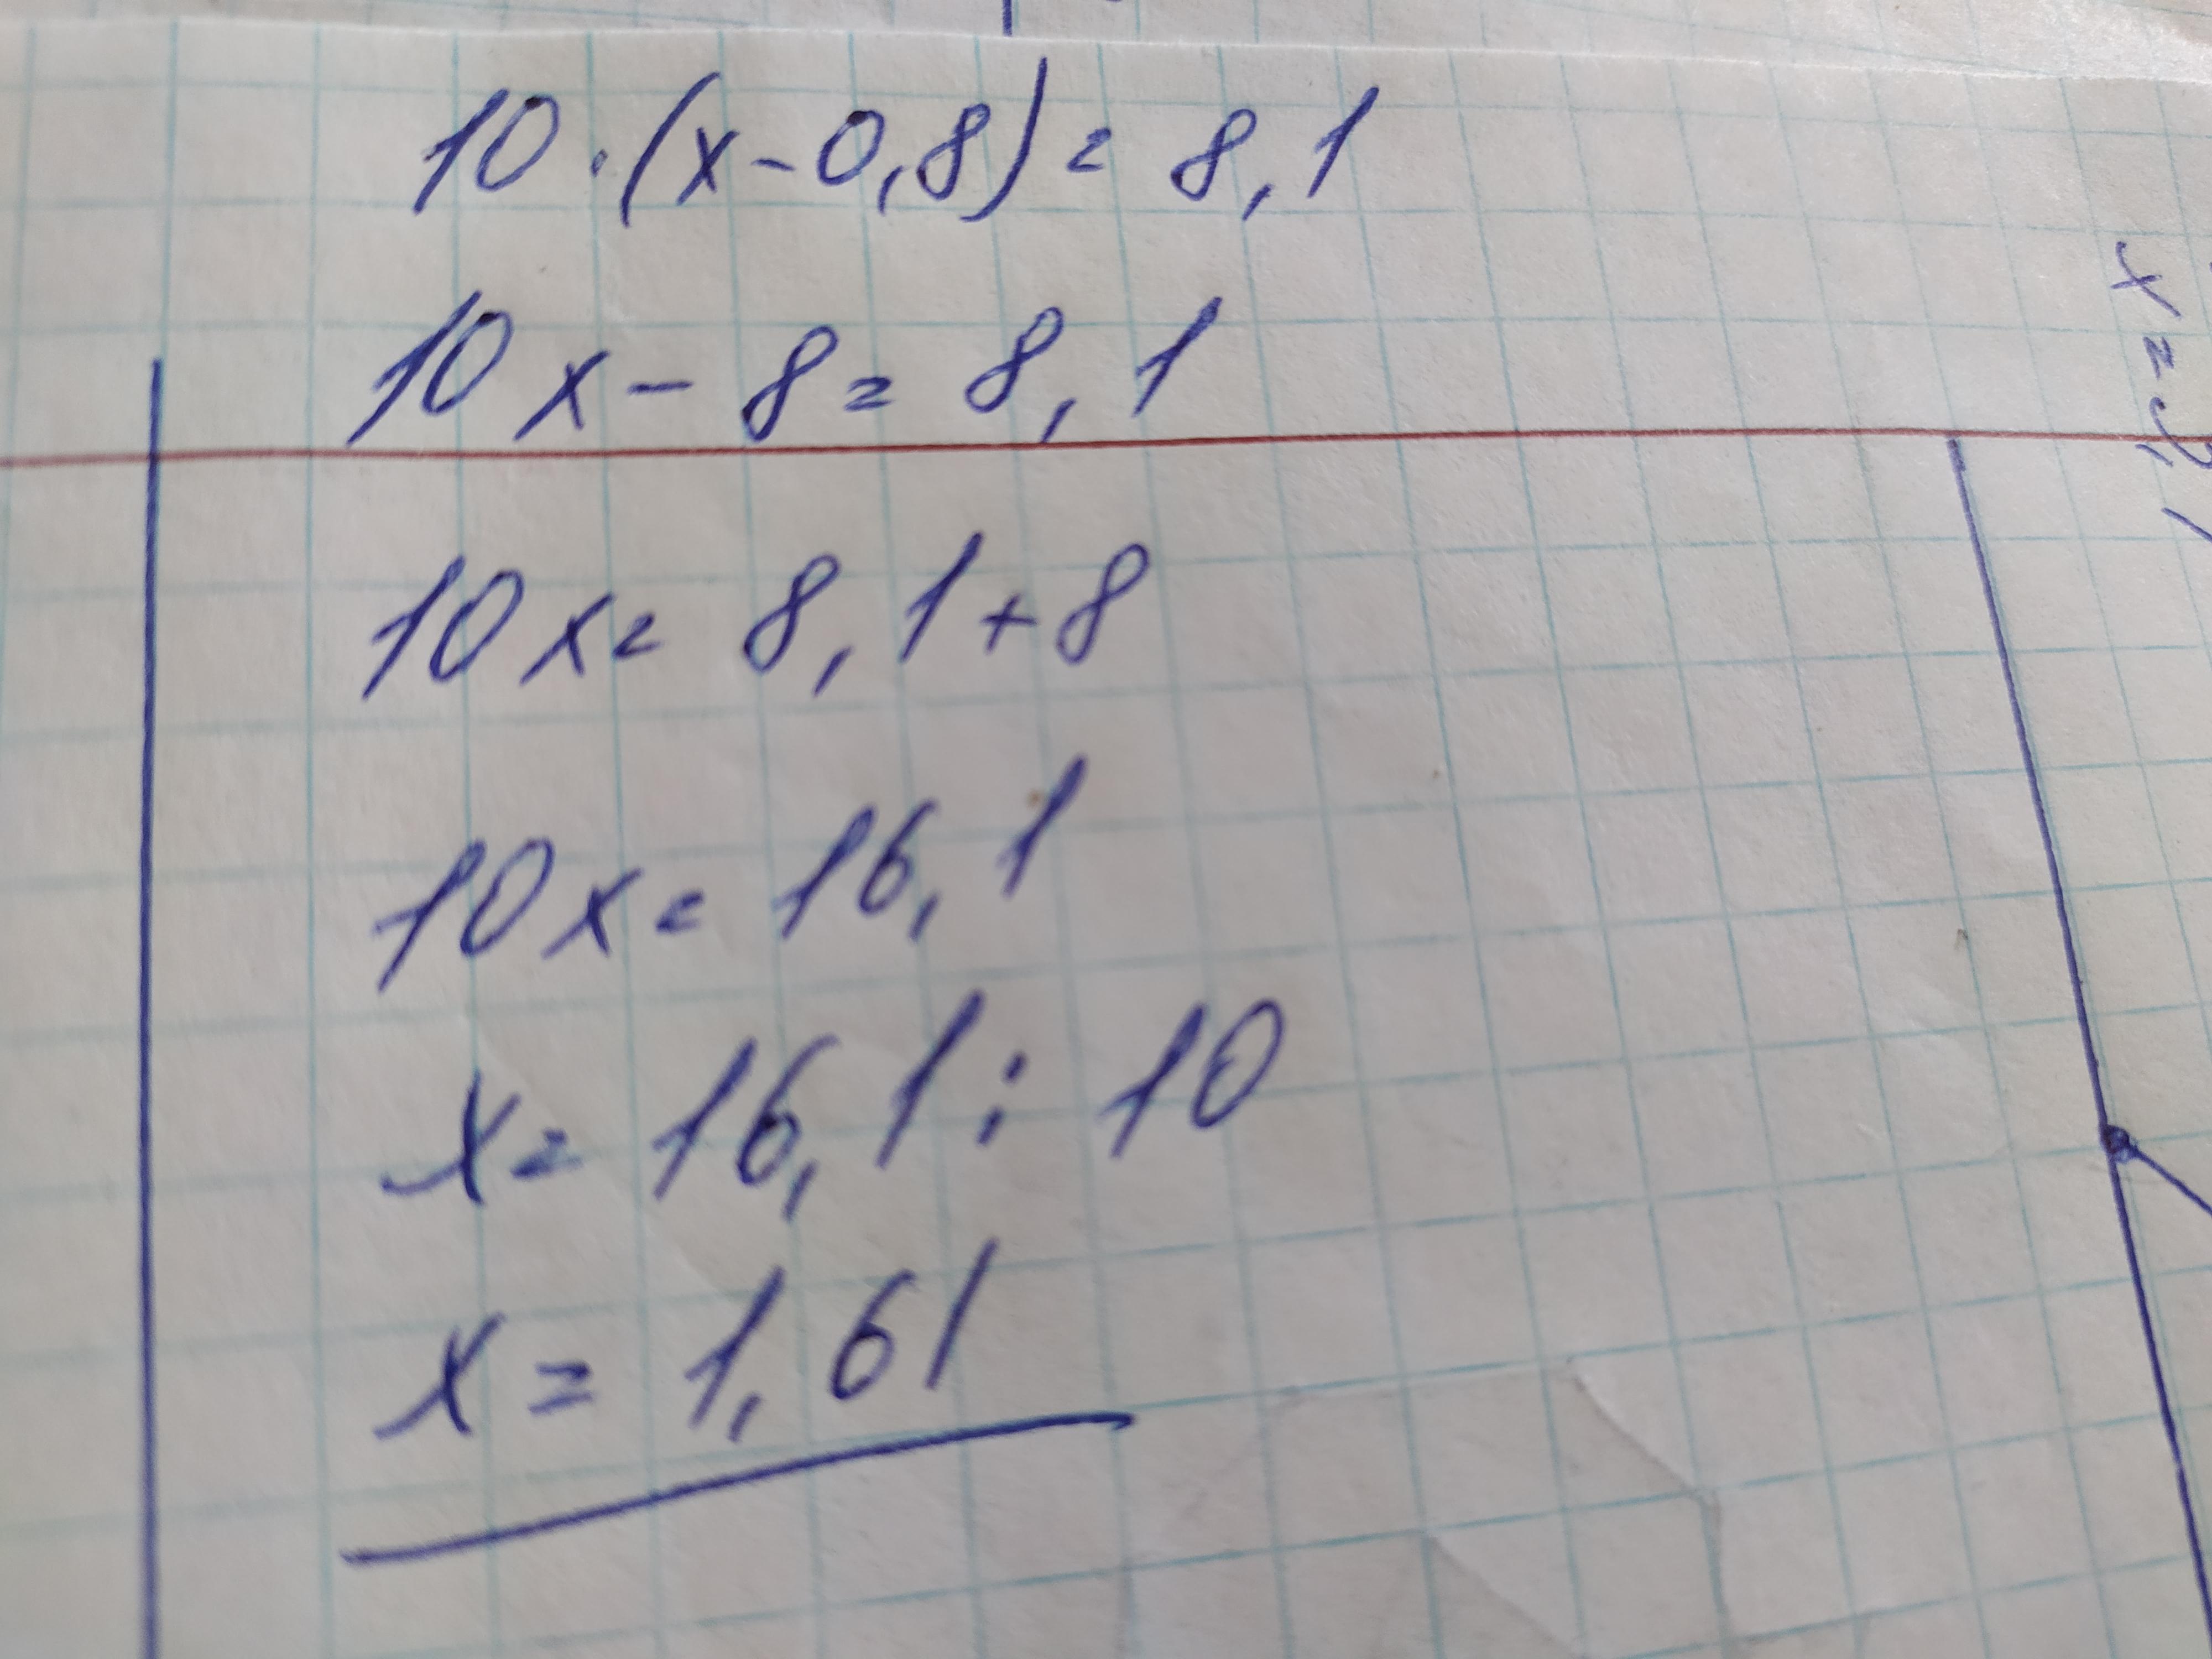 10 · (x - 0,8) = 8,1
10x - 8 = 8,1
10x = 8,1 + 8
10x = 16,1
x = 16,1 : 10
x = 1,61
x =